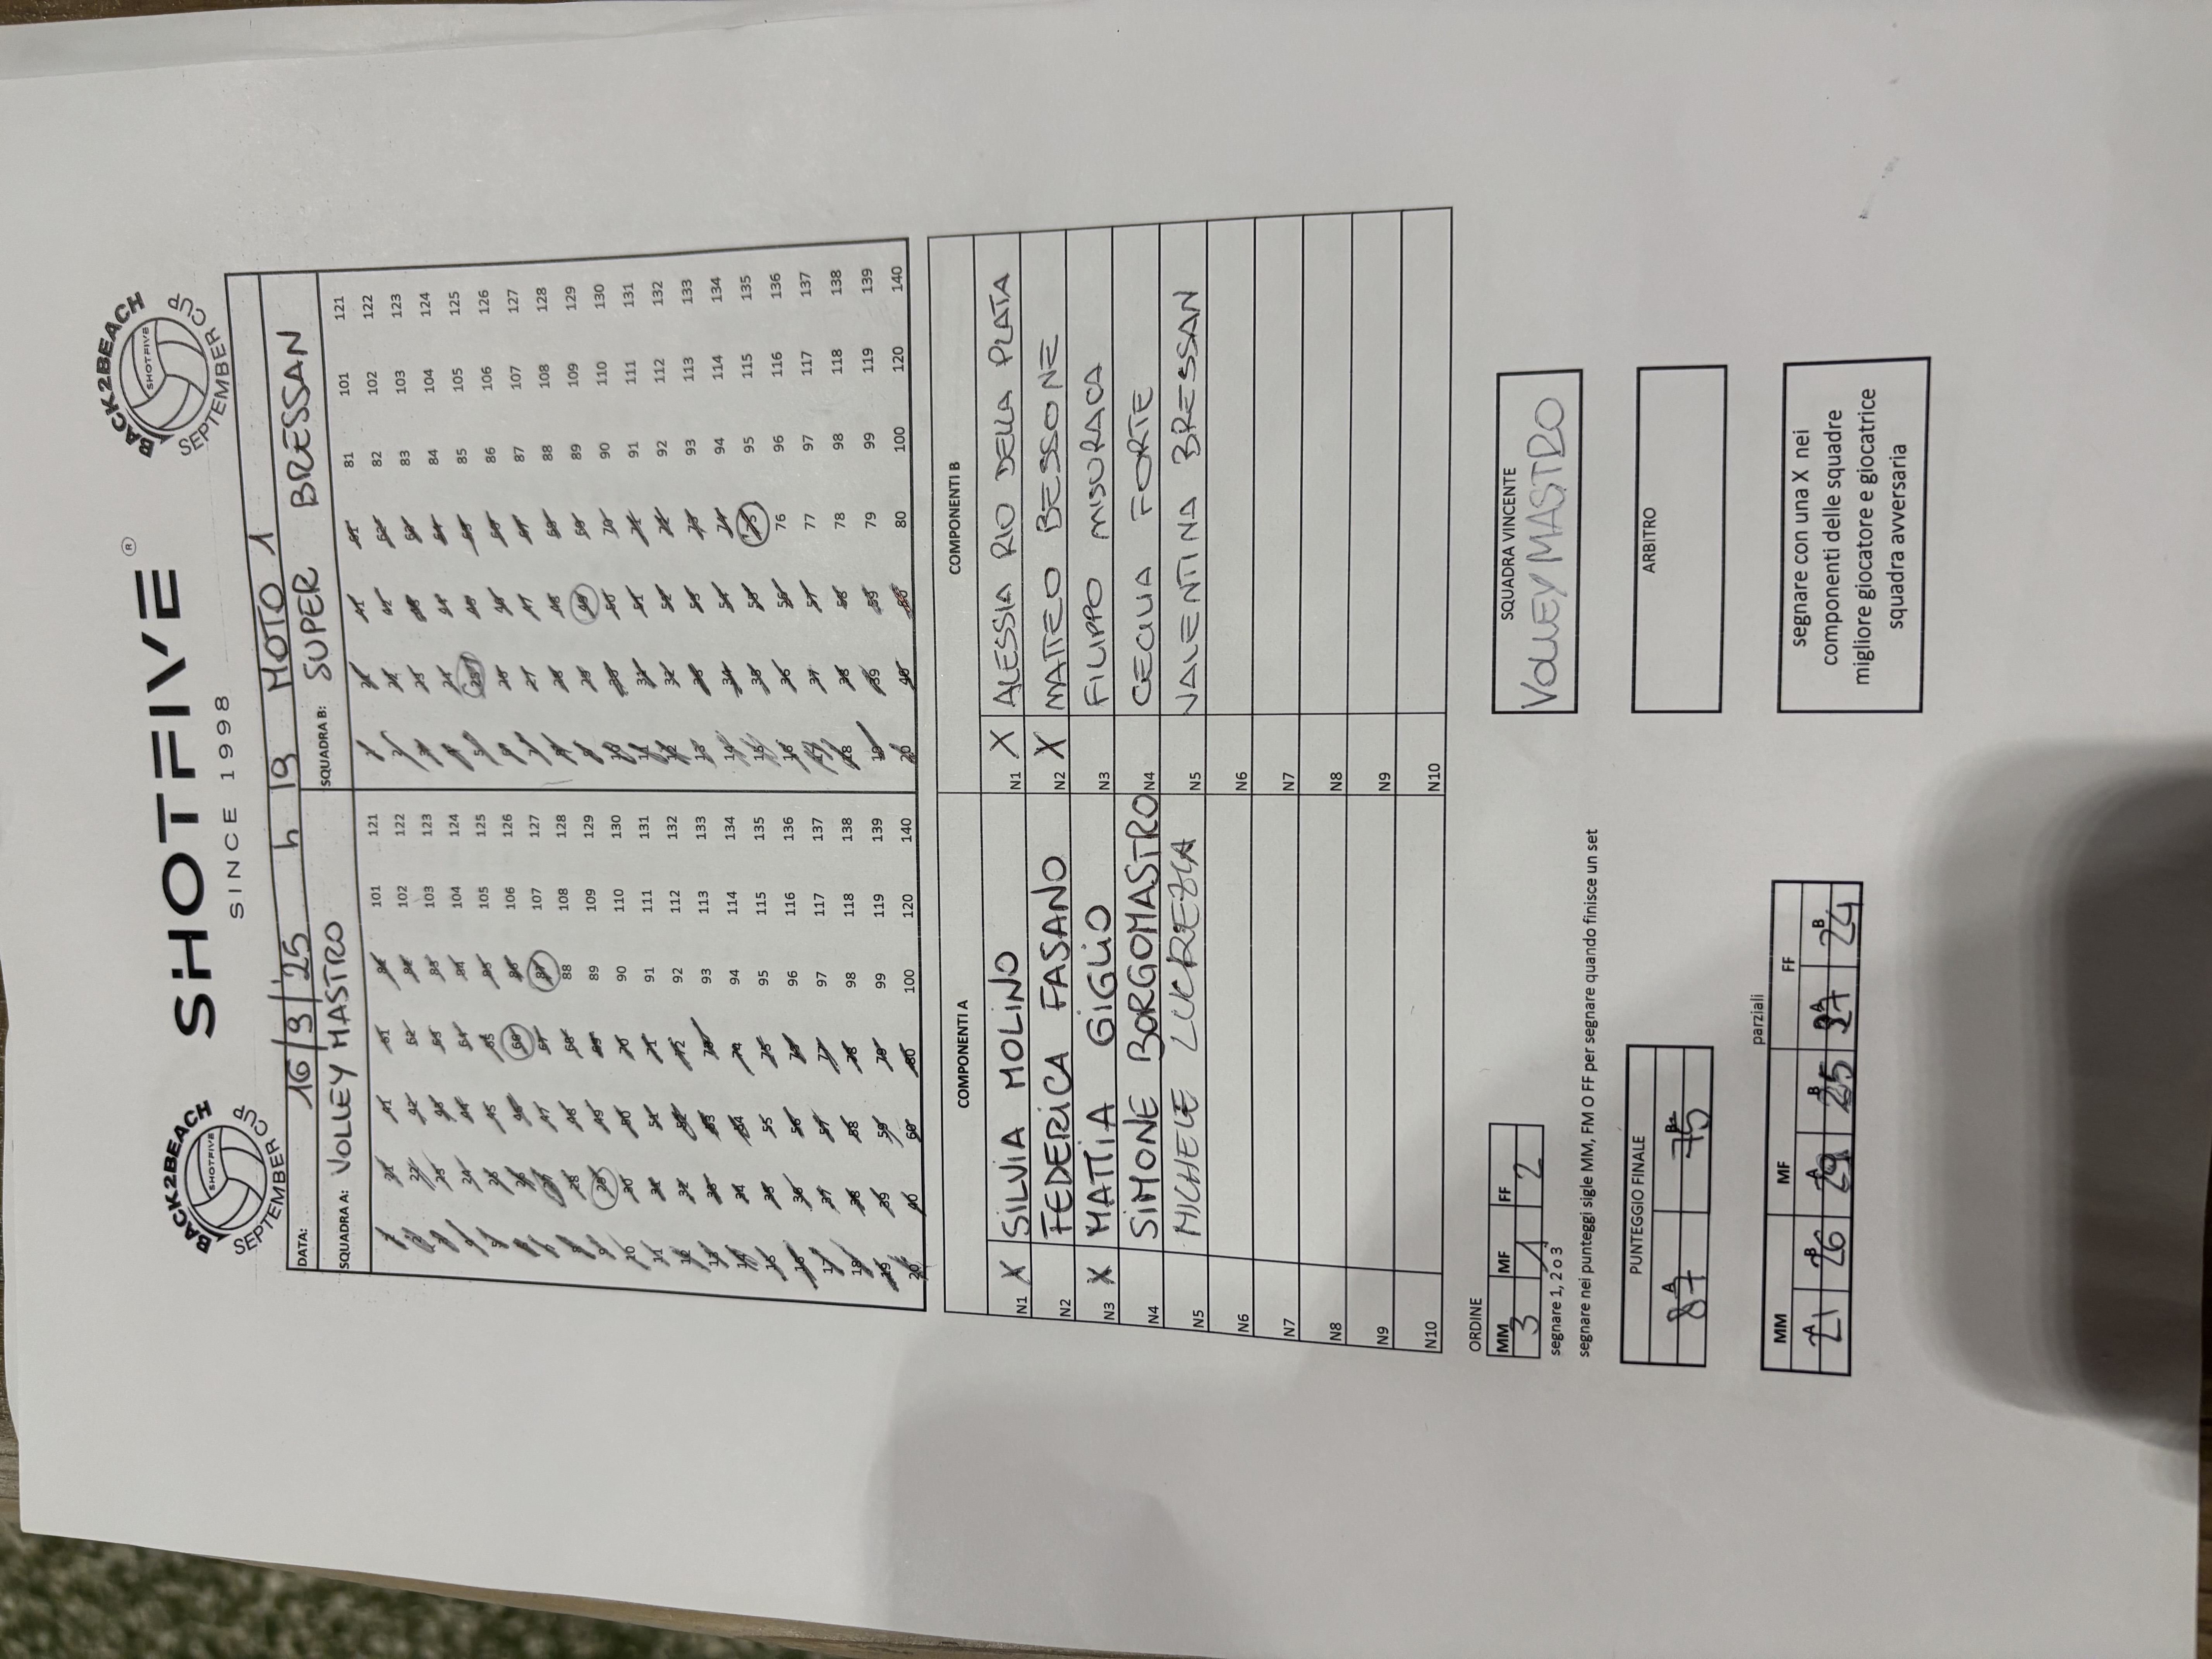 BACK2BEACH
SHOTFIVE
SEPTEMBER CUP
SHOTFIVE®
SINCE 1998
BACK2BEACH
SHOTFIVE
SEPTEMBER CUP
DATA: 16/9/'25 h 19 MOTO 1
SQUADRA A: VOLLEY MASTRO SQUADRA B: SUPER BRESSAN
1 21 41 61 81 101 121 1 21 41 61 81 101 121
2 22 42 62 82 102 122 2 22 42 62 82 102 122
3 23 43 63 83 103 123 3 23 43 63 83 103 123
4 24 44 64 84 104 124 4 24 44 64 84 104 124
5 25 45 65 85 105 125 5 25 45 65 85 105 125
6 26 46 66 86 106 126 6 26 46 66 86 106 126
7 27 47 67 87 107 127 7 27 47 67 87 107 127
8 28 48 68 88 108 128 8 28 48 68 88 108 128
9 29 49 69 89 109 129 9 29 49 69 89 109 129
10 30 50 70 90 110 130 10 30 50 70 90 110 130
11 31 51 71 91 111 131 11 31 51 71 91 111 131
12 32 52 72 92 112 132 12 32 52 72 92 112 132
13 33 53 73 93 113 133 13 33 53 73 93 113 133
14 34 54 74 94 114 134 14 34 54 74 94 114 134
15 35 55 75 95 115 135 15 35 55 75 95 115 135
16 36 56 76 96 116 136 16 36 56 76 96 116 136
17 37 57 77 97 117 137 17 37 57 77 97 117 137
18 38 58 78 98 118 138 18 38 58 78 98 118 138
19 39 59 79 99 119 139 19 39 59 79 99 119 139
20 40 60 80 100 120 140 20 40 60 80 100 120 140
COMPONENTI A COMPONENTI B
N1 X SILVIA MOLINO N1 X ALESSIA RIO DELLA PLATA
N2 FEDERICA FASANO N2 X MATTEO BESSONE
N3 X MATTIA GIGLIO N3 FILIPPO MISURACA
N4 SIMONE BORGOMASTRO N4 CECILIA FORTE
N5 MICHELE LUCREZIA N5 VALENTINA BRESSAN
N6 N6
N7 N7
N8 N8
N9 N9
N10 N10
ORDINE
MM MF FF
3 1 2
segnare 1, 2 o 3
segnare nei punteggi sigle MM, FM O FF per segnare quando finisce un set
SQUADRA VINCENTE
VOLLEY MASTRO
PUNTEGGIO FINALE
A B
87 75
ARBITRO
parziali
MM MF FF
A B A B A B
21 26 29 25 37 24
segnare con una X nei
componenti delle squadre
migliore giocatore e giocatrice
squadra avversaria